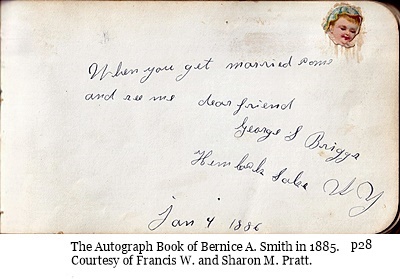 When you get married come
and see me dear friend
George S Briggs
Hemlock Lake N Y
Jan 4 1886
The Autograph Book of Bernice A. Smith in 1885. p28
Courtesy of Francis W. and Sharon M. Pratt.